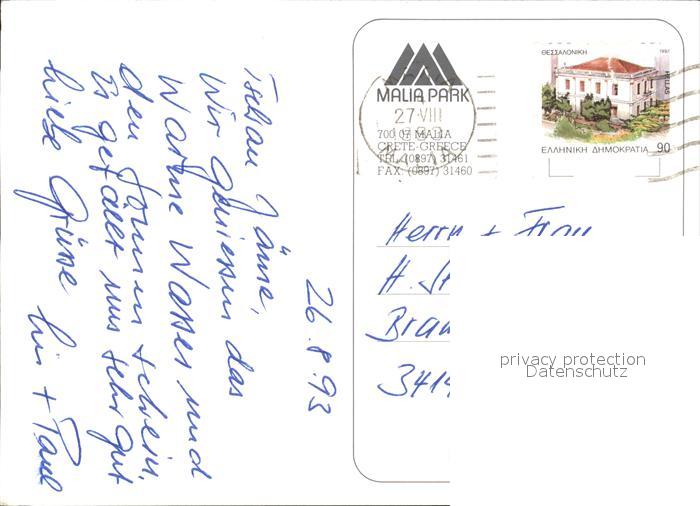 26.8.93
Tschau Jäme,
Wir geniessen das
Warme Wasser und
den Sonnenschein.
Es gefällt uns sehr gut
liebe Grüsse
+ Paul
MALIA PARK
27 VIII
700 07 MALIA
CRETE-GREECE
TEL: (0897) 31461
FAX: (0897) 31460
ΘΕΣΣΑΛΟΝΙΚΗ
1992
HELLAS
ΕΛΛΗΝΙΚΗ ΔΗΜΟΚΡΑΤΙΑ 90
Herrn + Frau
H. St
Brau
3414
privacy protection
Datenschutz